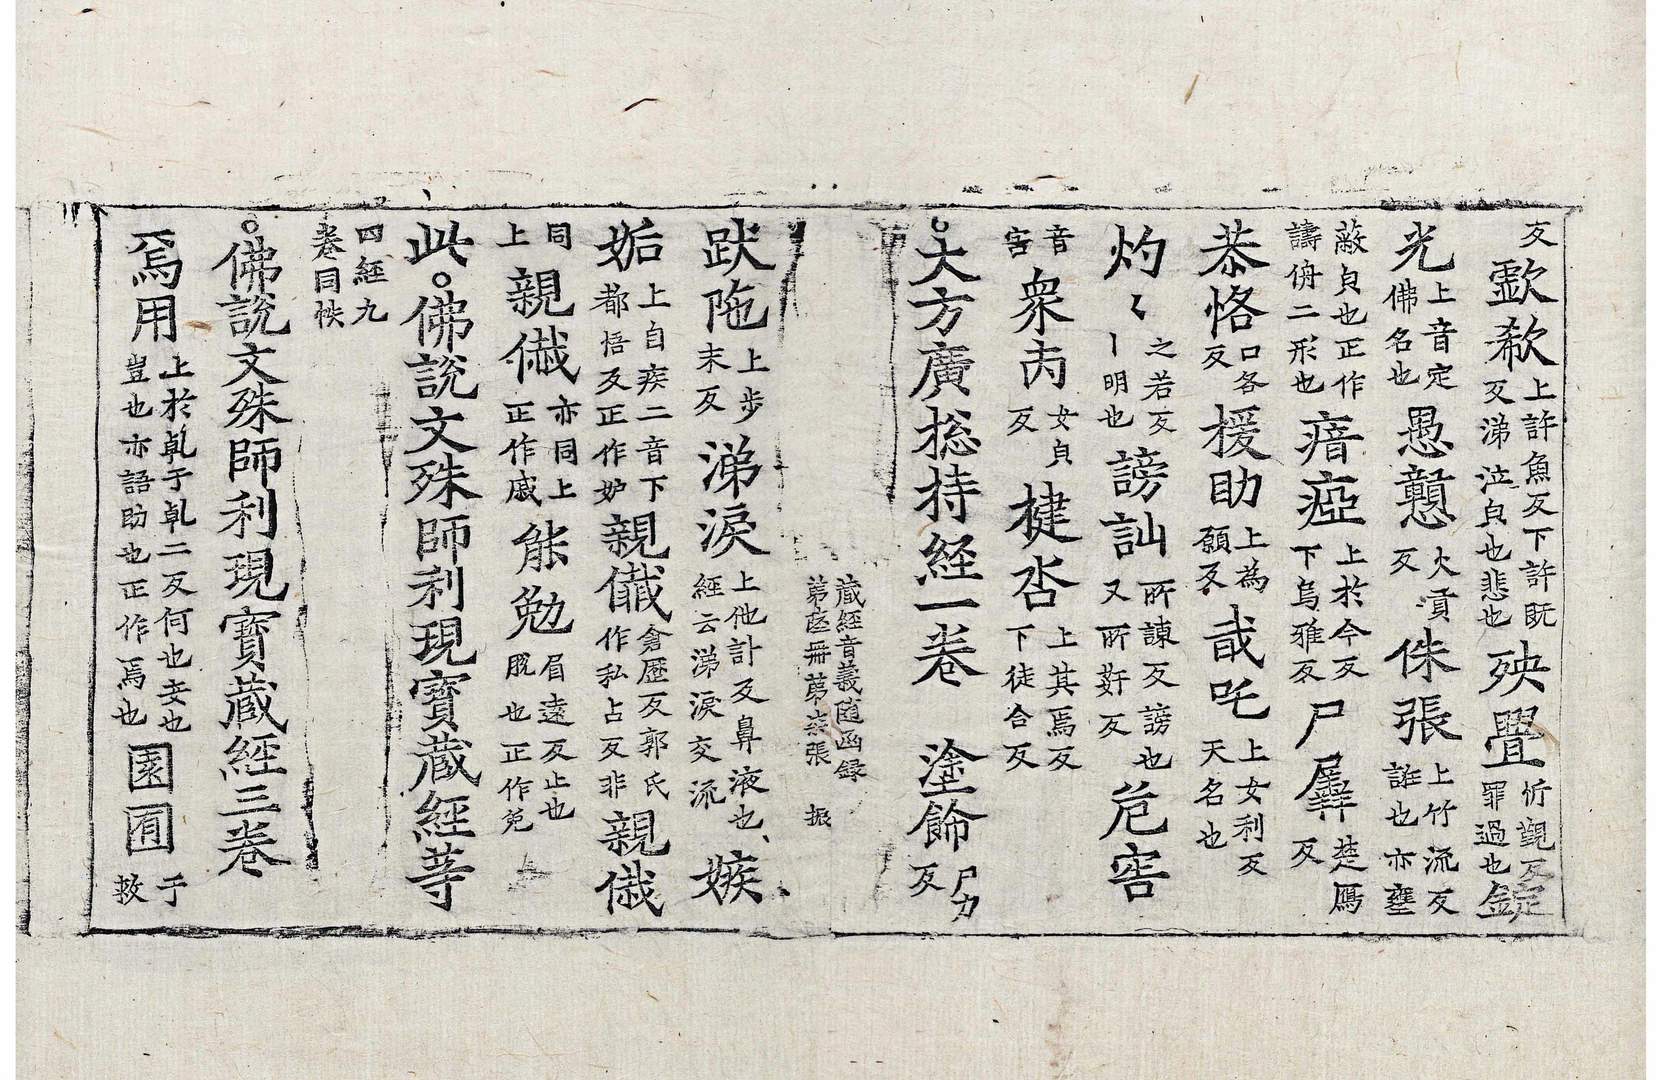 反歔欷上許魚反下許既反涕泣皃也悲也殃舋忻覲反罪過也錠
光上音定佛名也愚戇火貢反侏張上竹流反誰也亦壅
蔽皃也正作譸侜二形也瘖瘂上於今反下烏雅反尸羼楚鴈反
恭恪口各反援助上為願反哉吒上女利反天名也
灼〻之若反丨明也謗訕所諫反謗也又所姧反危害
音害衆芮女貞反揵沓上其焉反下徒合反
。大方廣捴持經一卷 塗飾尸力反
藏經音義随函録
弟 冊第柒張 振
跋陁上步末反涕淚上他計反鼻液也經云涕淚交流嫉
姤上自疾二音下都悟反正作妒親儎倉歷反郭氏作私占反非親
同上親 亦同上正作戚能勉眉遠反止也脫也正作免
此。佛說文殊師利現寶藏經等
四經九卷同帙
。佛說文殊師利現寶藏經三卷
焉用上於乹于乹二反何也安也豈也亦語助也正作焉也園囿于救